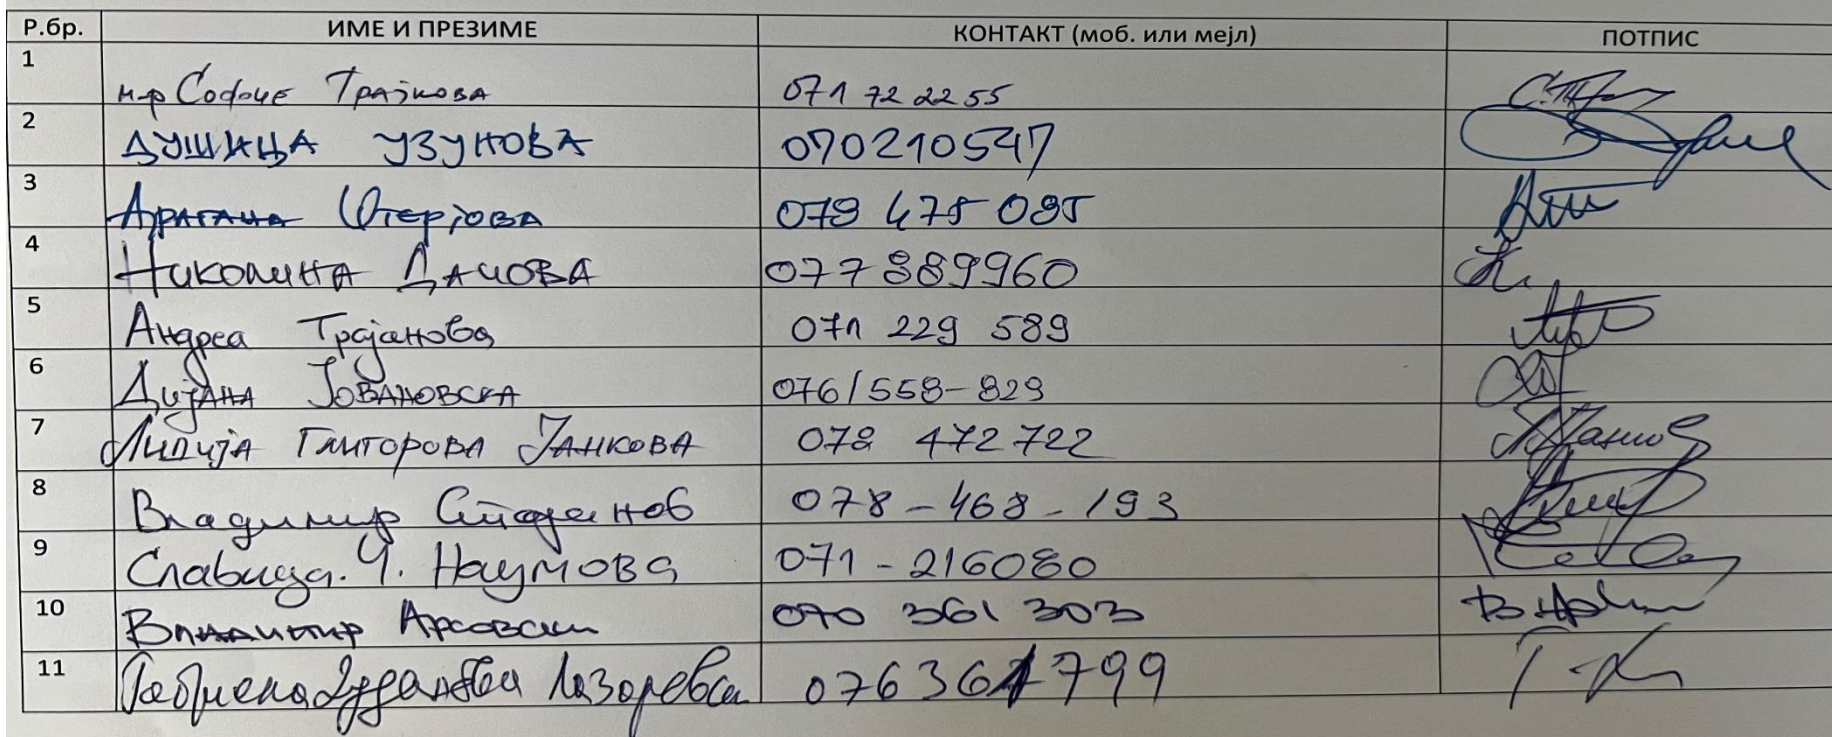 Р.бр. ИМЕ И ПРЕЗИМЕ КОНТАКТ (моб. или мејл) ПОТПИС
1 м-р Софче Трајкова 071 72 22 55
2 ДУШИЦА УЗУНОВА 070210547
3 Драгана Штерјова 079 475 095
4 Николина Дацова 077 889960
5 Андреа Трајанова 071 229 589
6 Дијана Јовановска 076/558-829
7 Лидија Глигорова Јанкова 078 472 722
8 Владимир Стефанов 078-468-193
9 Славица. Ч. Наумова 071-216080
10 Владимир Арсовски 070 361 303
11 Габриела Лазаревска 076361799